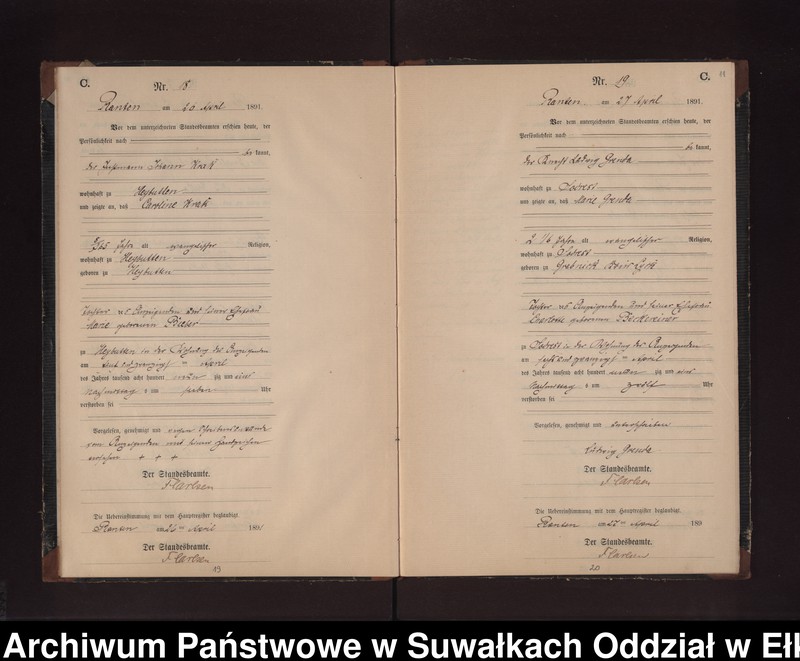 C.
Nr. 18
Ranten am 26 April 1891.
Vor dem unterzeichneten Standesbeamten erschien heute, der
Persönlichkeit nach
be kannt,
der Johann Krak
wohnhaft zu Heybutten
und zeigte an, daß Caroline Krak
Jahre alt evangelischer Religion,
wohnhaft zu Heybutten
geboren zu Heybutten
Tochter des Anzeigenden und seiner Ehefrau
Marie geborenen
zu Heybutten in der Behausung des Anzeigenden
am April
des Jahres tausend acht hundert neun zig und eins
Nachmittag s um sieben Uhr
verstorben sei
Vorgelesen, genehmigt und wegen
vom Anzeigenden mit seinem Handzeichen
versehen + + +
Der Standesbeamte.
F Carlsen
Die Uebereinstimmung mit dem Hauptregister beglaubigt.
Ranten am 26ten April 1891
Der Standesbeamte.
F Carlsen
19
C. 11
Nr. 19
Ranten am 27 April 1891.
Vor dem unterzeichneten Standesbeamten erschien heute, der
Persönlichkeit nach
be kannt,
der Knecht Ludwig Grenda
wohnhaft zu
und zeigte an, daß Marie Grenda
2 1/6 Jahre alt evangelischer Religion,
wohnhaft zu
geboren zu Grabnick Kreis Lyck
Tochter des Anzeigenden und seiner Ehefrau
Charlotte geborenen
zu in der Behausung des Anzeigenden
am sechs und zwanzigsten April
des Jahres tausend acht hundert neun zig und eins
Nachmittag s um zwölf Uhr
verstorben sei
Vorgelesen, genehmigt und unterschrieben
Ludwig Grenda
Der Standesbeamte.
F Carlsen
Die Uebereinstimmung mit dem Hauptregister beglaubigt.
Ranten am 27ten April 189
Der Standesbeamte.
F Carlsen
20
Archiwum Państwowe w Suwałkach Oddział w Ełk